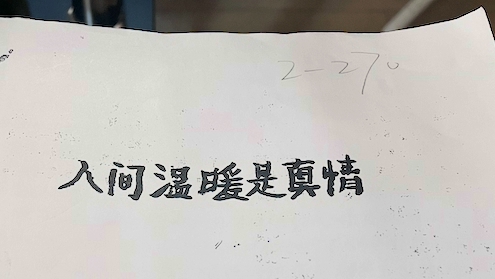 2-270
人间温暖是真情